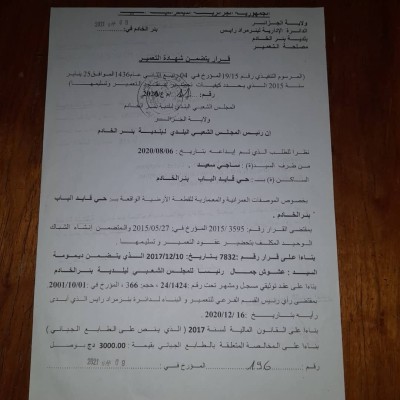 الجمهورية الجزائرية الديمقراطية الشعبية
ولاية الجزائر
الدائرة الإدارية لبئرمراد رايس
بلدية بئر الخادم
مصلحة التعمير
بئر الخادم في
2021
قرار يتضمن شهادة التعمير
(المرسوم التنفيذي رقم 19/15 المؤرخ في 04 ربيع الثاني عام 1436 الموافق 25 يناير
سنة 2015 الذي يحدد كيفيات تحضير عقود التعمير وتسليمها)
رقم: 2020
المجلس الشعبي البلدي لبلدية بئر الخادم
ولاية الجزائر
إن رئيس المجلس الشعبي البلدي لبلدية بئر الخادم
نظرا للطلب الذي تم إيداعه بتاريخ: 2020/08/06
من طرف السيد(ة): ساجي سعيد .
الساكن (ة) ـــ: حي قايد الباب بئر الخادم
بخصوص الموصفات العمرانية والمعمارية للقطعة الأرضية الواقعة ـــ حي قايد الباب
بئر الخادم .
بمقتضى القرار رقم: 3595 /2015 المؤرخ في 2015/05/27 والمتضمن إنشاء الشباك
الوحيد المكلف بتحضير عقود التعمير و تسليمها.
بناءا على قرار رقم: 7832 بتاريخ 2017/12/10 الذي يتضمن ديمومة
السيد: عشوش جمال رئيسا للمجلس الشعبي لبلدية بئر الخادم
بناءا على عقد توثيقي مسجل ومشهر تحت رقم: 24/1424، حجم: 366، المؤرخ في: 2001/10/01.
بمقتضى رأي رئيس القسم الفرعي للتعمير و البناء لدائرة بئرمراد رايس الذي أبدى
رأيه بتاريخ: 16 /2020/12 .
بناءا على القانون المالية لسنة 2017 (الذي ينص على الطابع الجبائي)
بناءا على المخالصة المتعلقة بالطابع الجبائي بقيمة: 3000.00 دج بوصل
رقم 196 المؤرخ في 2021